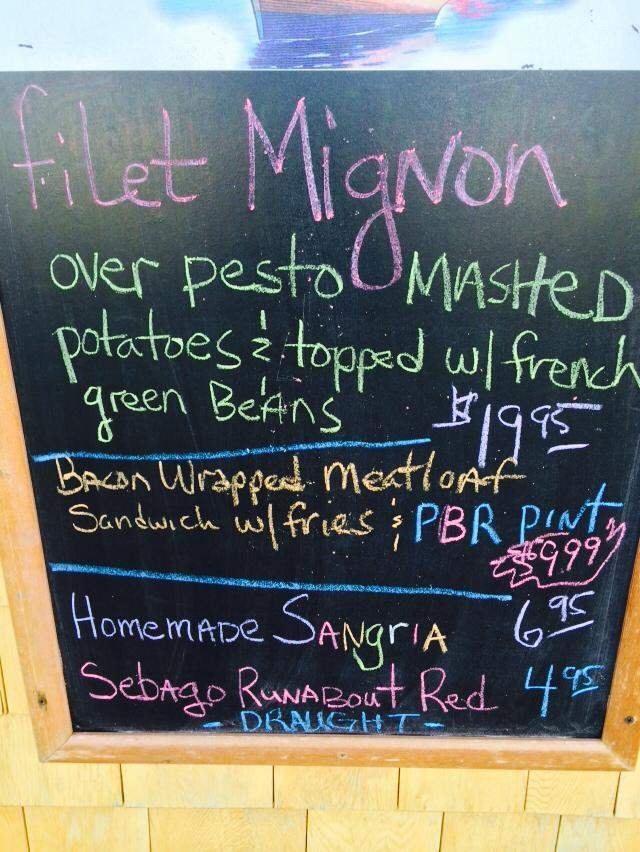 filet Mignon
over pesto MASHeD
potatoes & topped w/ french
green BeAns
$19.95
BAcon Wrapped meatloAf
Sandwich w/ fries & PBR PINt
$9.99
HomemADe SANgrIA 6.95
SebAgo RuNABout Red 4.95
- DRAUGHT -